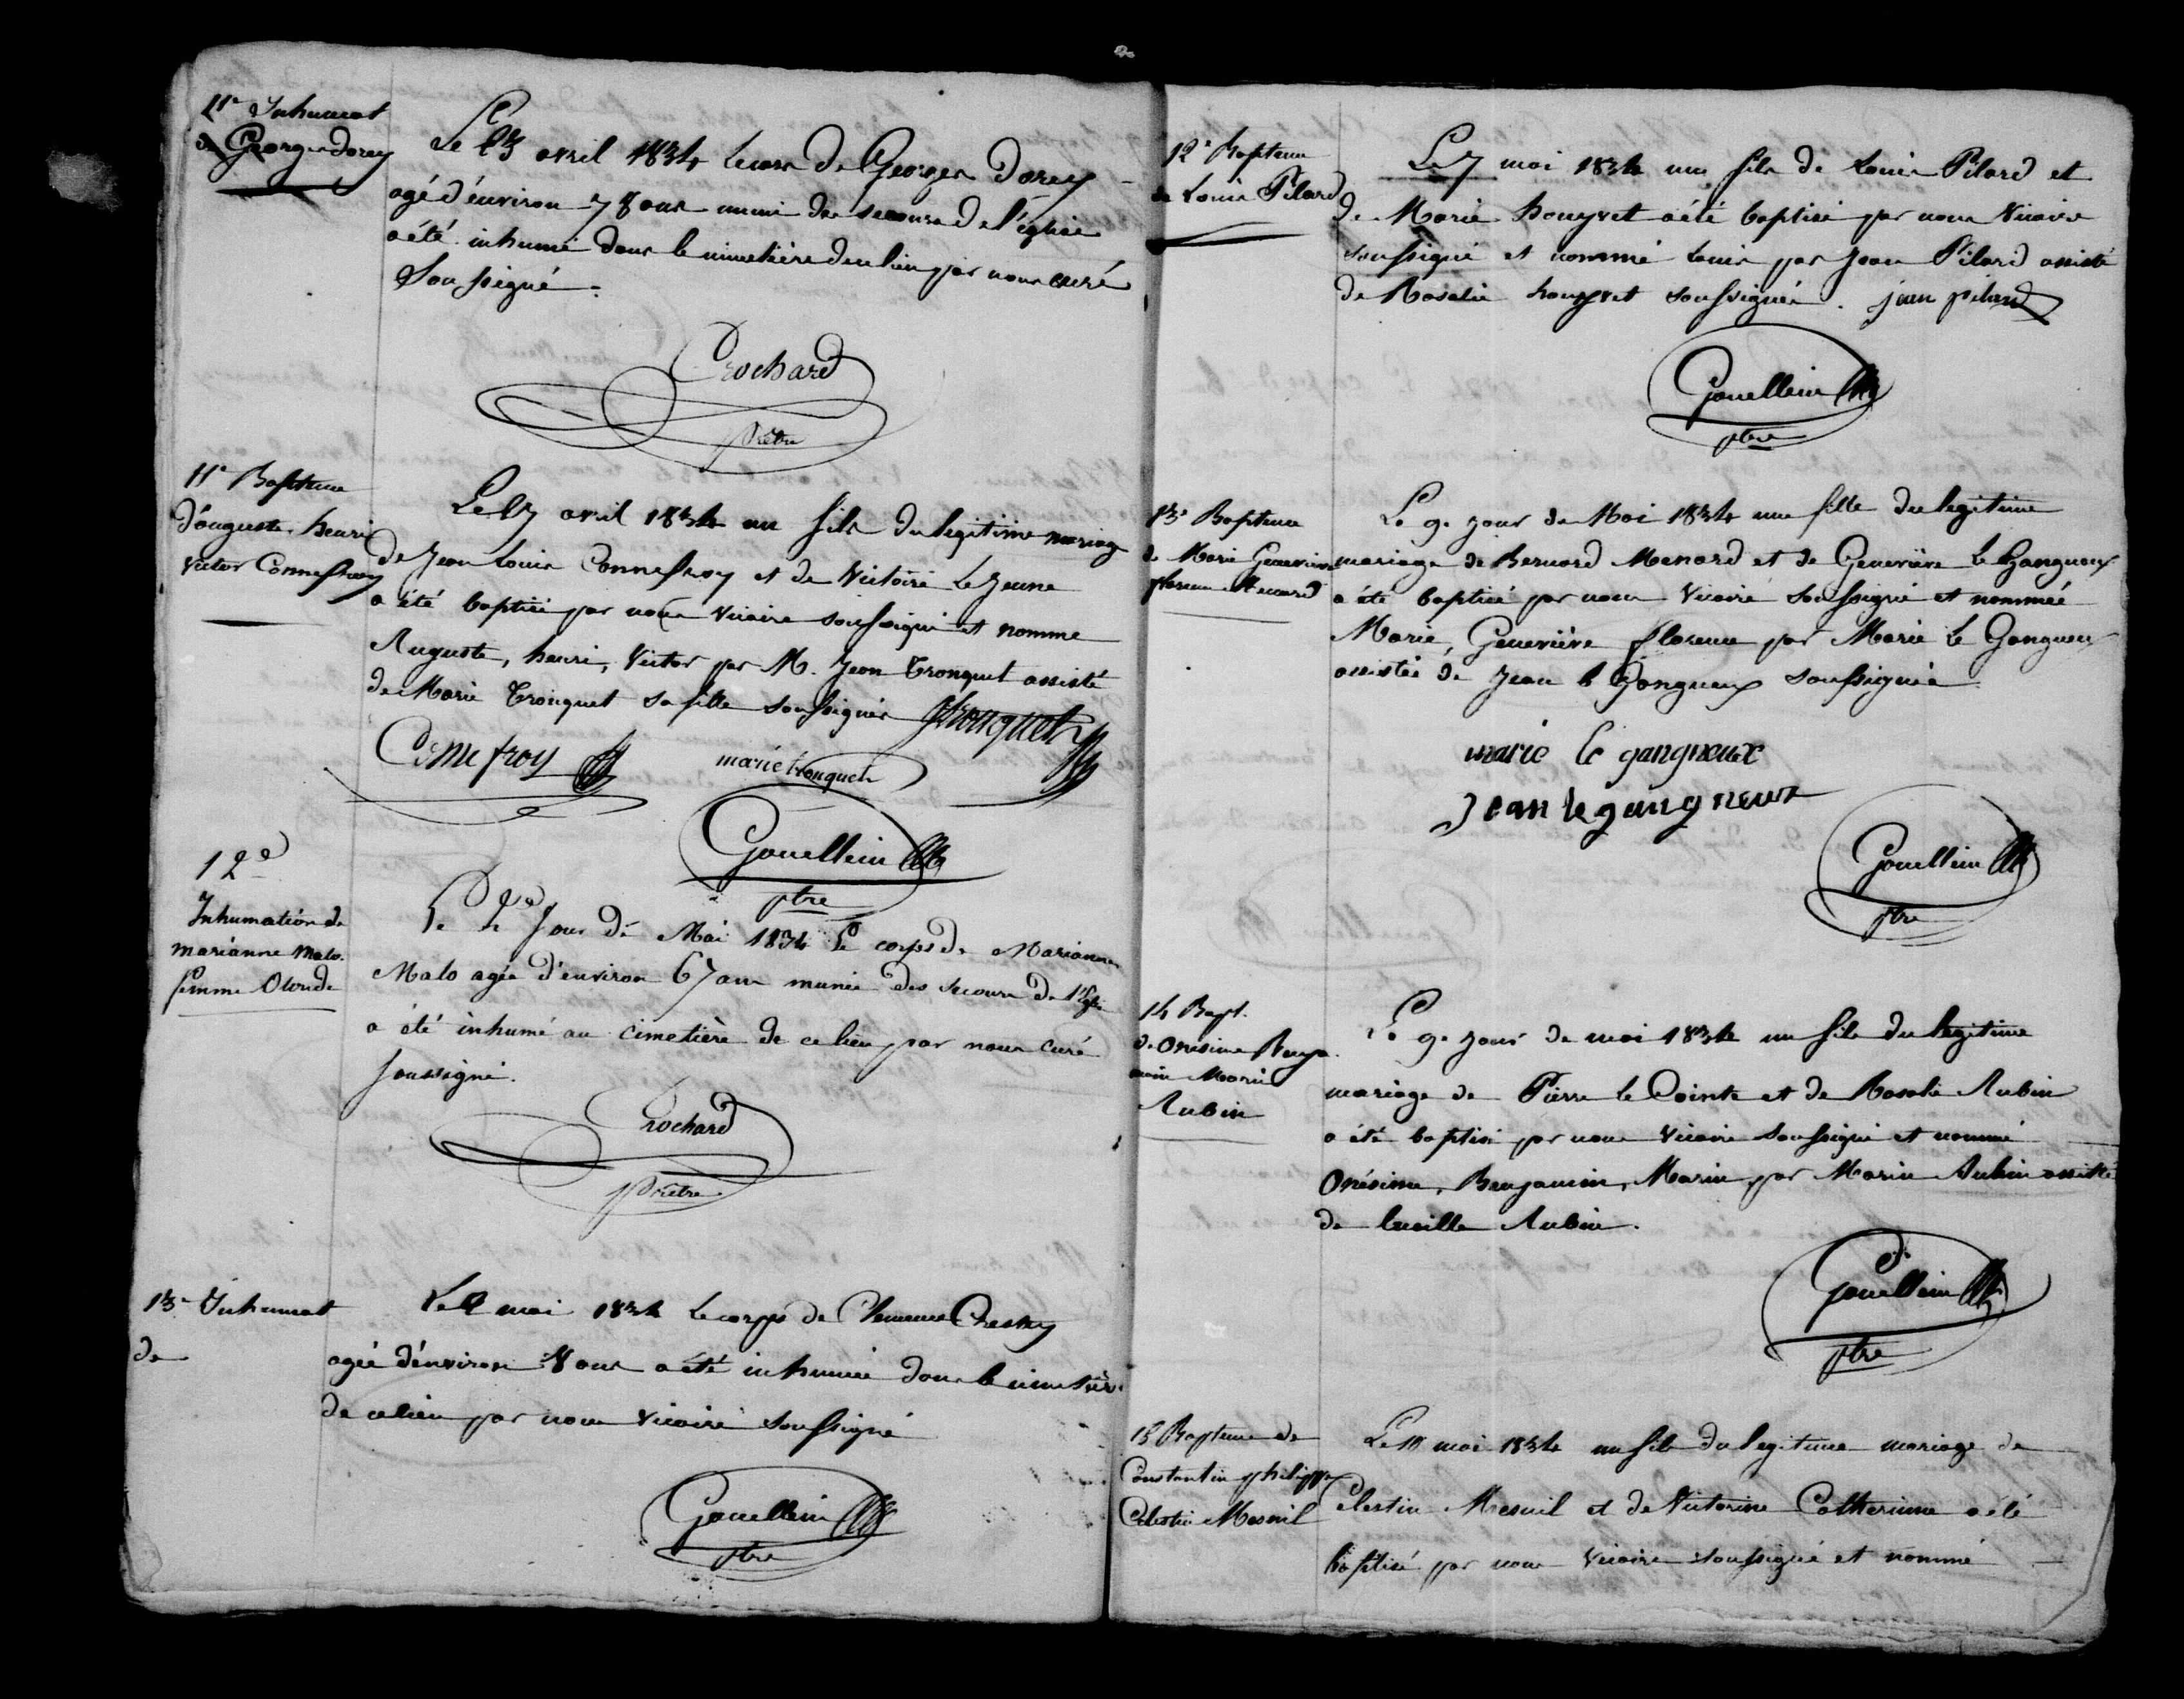 11e Inhumat
de Georges dorey
Le 13 avril 1834 le corps de Georges Dorey
agé d'environ 78 ans muni des secours de l'église
a été inhumé dans le cimetière de ce lieu par nous curé
Soussigné.
Crochard
prêtre
11e Baptême
d'auguste, henri
victor Connefroy
Le 17 avril 1834 un fils du legitime mariage
de Jean Louis Connefroy et de Victoire Le Jeune
a été baptisé par nous vicaire soussigné et nommé
Auguste, henri, Victor par M. Jean Tronquet assisté
de Marie Tronquet sa fille soussignés JTronquet
Connefroy marie tronquet
Gouellain
ptre
12e
Inhumation de
marianne Malo
femme
Le jour de Mai 1834 le corps de Marianne
Malo agée d'environ 67 ans munie des secours de l'Eglise
a été inhumé au cimetière de ce lieu par nous curé
soussigné.
Crochard
prêtre
13e Inhumat
de
Le mai 1834 le corps de
agée d'environ ans a été inhumée dans le cimetière
de ce lieu par nous vicaire soussigné
Gouellain
ptre
12e Baptême
de Louis Pilard
Le 7 mai 1834 un fils de Louis Pilard et
de Marie houyvet a été baptisé par nous vicaire
soussigné et nommé Louis par Jean Pilard assisté
de Rosalie houyvet soussignés. jean pilard
Gouellain
ptre
13e Baptême
de Marie Geneviève
florence Menard
Le 9e jour de Mai 1834 une fille du legitime
mariage de Bernard Menard et de Geneviève Le Gangneux
a été baptisée par nous vicaire soussigné et nommée
Marie, Geneviève florence par Marie Le Gangneux
assistée de Jean le Gangneux soussignés
marie le gangneux
Jean le gangneux
Gouellain
ptre
14 Bapt.
de Onésime Benja
min Marin
Aubin
Le 9e jour de mai 1834 un fils du legitime
mariage de Pierre le Cointe et de Rosalie Aubin
a été baptisé par nous vicaire soussigné et nommé
Onésime, Benjamin, Marin par Marin Aubin assisté
de lucille Aubin.
Gouellain
ptre
15 Bapteme de
Constantin philippe
Celestin Mesnil
Le 11 mai 1834 un fils du legitime mariage de
Celestin Mesnil et de Victorine Catherinne a été
baptisé par nous vicaire soussigné et nommé